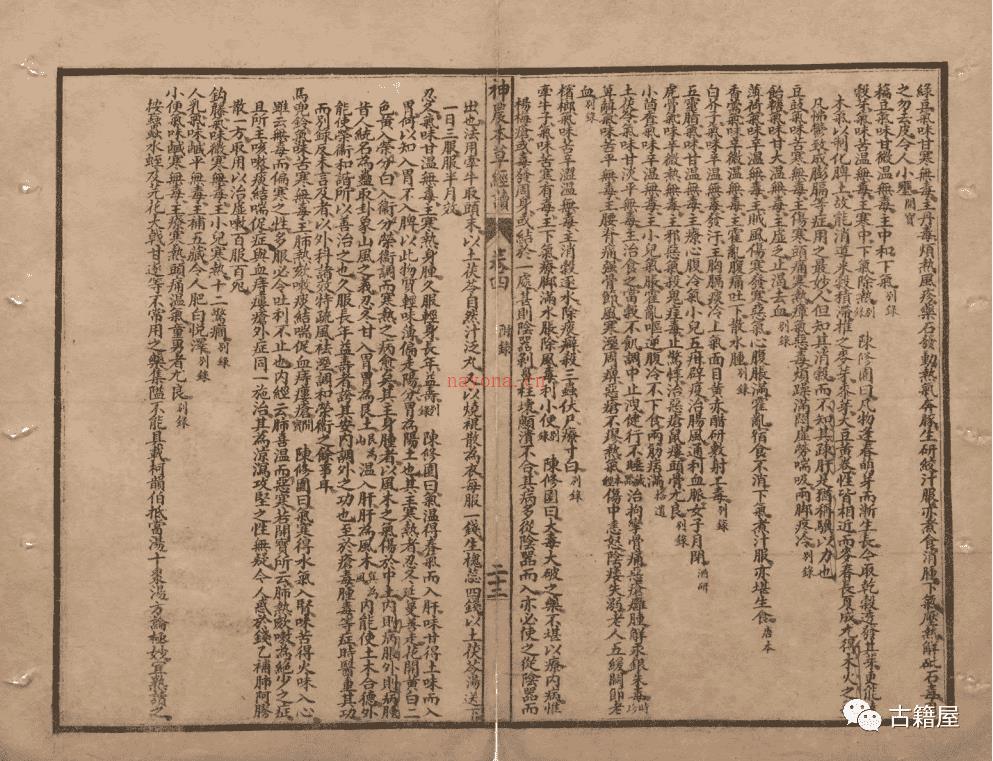 綠豆氣味甘寒無毒主丹毒煩熱風疹藥石發動熱氣奔豚生研絞汁服亦煮食消腫下氣壓熱解砒石毒
之勿去皮令人小壅 開寶
稿豆氣味甘微溫無毒主和中下氣 別錄
穀芽氣味苦溫無毒主寒中下氣除熱 別錄 陳修園曰凡物逢春萌芽而漸生長今取乾穀透發其芽更能
木氣以制化脾土故能消導米穀積滯推之麥芽黍芽大豆黃卷性皆相近而麥春長夏成尤得木火之
凡怫鬱致成膨膈等症用之最妙人但知其消穀而不知其疎肝是猶稱驥以力也
豆豉氣味苦寒無毒主傷寒頭痛寒熱瘴氣惡毒煩躁滿悶虛勞喘吸兩腳疼冷 別錄
飴糖氣味甘大溫無毒主虛乏止渴去血 別錄
薄荷氣味辛溫無毒主賊風傷寒發寒惡氣心腹脹滿霍亂宿食不消下氣煮汁服亦堪生食 唐本
香薷氣味辛微溫無毒主霍亂腹痛吐下散水腫 別錄
白芥子氣味辛溫無毒發汗主胸膈痰冷上氣面目黃赤醋研敷射工毒 別錄
五靈脂氣味甘溫無毒主療心腹冷氣小兒五疳辟疫治腸風通利血脈女子月閉
虎骨氣味辛微熱無毒主邪惡氣殺鬼疰毒止驚悸治惡瘡鼠瘻頭骨尤良 別錄
小茴香氣味辛溫無毒主小兒氣脹霍亂嘔逆腹冷不下食兩筋痞滿
土茯苓氣味甘淡平無毒主治食之當穀不飢調中止洩健行不睡 治拘攣骨痛惡瘡癰腫解汞銀朱毒
萆薢氣味苦平無毒主腰脊痛強骨節風寒溼周痺惡瘡不瘳熱氣 傷中恚怒陰痿失溺老人五緩關節老
血 別錄
檳榔氣味苦辛濇溫無毒主消穀逐水除痰癖殺三蟲伏尸療寸白 別錄
牽牛子氣味苦寒有毒主下氣療腳滿水脹除風毒利小便 別錄 陳修園曰大毒大破之藥不堪以療內病惟
楊梅瘡或毒發周身或結於一處甚則陰器剝鼻柱壞顱潰不合其病多從陰器而入亦必使之從陰器而
神農本草經讀 卷四 附錄 二十三
出也法用牽牛取頭末以土茯苓自然汁泛丸又以燒裩散為衣每服一錢生槐蕊四錢以土茯苓湯送下
一日三服服半月效
忍冬氣味甘溫無毒主寒熱身腫久服輕身長年益壽 別錄 陳修園曰氣溫得春氣而入肝味甘得土味而入
胃何以知入胃不入脾以此物質輕味薄偏走陽分胃為陽土也其主寒熱者忍冬延蔓善走花開黃白二
色黃入榮分白入衞分榮衞調而寒熱之病愈矣其主身腫者以風木之氣傷於中土內則病脹外則病腫
昔人統名為蠱取卦象山風之義忍冬甘入胃胃為艮土 溫入肝肝為風木 內能使土木合德外
能使榮衞和諧所以善治之也久服長年益壽者誇其安內調外之功也至於瘡毒腫毒等症時醫重其功
而別錄反未言及者以外科諸效特疏風祛溼調和榮衞之餘事耳
馬兜鈴氣味苦寒無毒主肺熱欬嗽痰結喘促血痔瘻瘡 開寶 陳修園曰氣寒得水氣入腎味苦得火味入心
雖云無毒而偏寒之性多服必令吐利不止也內經云肺喜溫而惡寒若開寶所云肺熱欬嗽為絕少之症
且所主咳嗽痰結喘促症與血痔瘻瘡外症同一施治其為涼瀉攻堅之性無疑今人惑於錢乙補肺阿膠
散一方取用以治虛嗽百服百死
鈎藤氣味微寒無毒主小兒寒熱十二驚癇 別錄
人乳氣味鹹平無毒主補五臟令人肥白悅澤 別錄
小便氣味鹹寒無毒主療寒熱頭痛溫氣童男者尤良 別錄
按䗪蝱水蛭及芫花大戟甘遂等不常用之藥集隘不能具載柯韻伯抵當湯十棗湯方論極妙宜熟讀之
nayona.cn
古籍屋